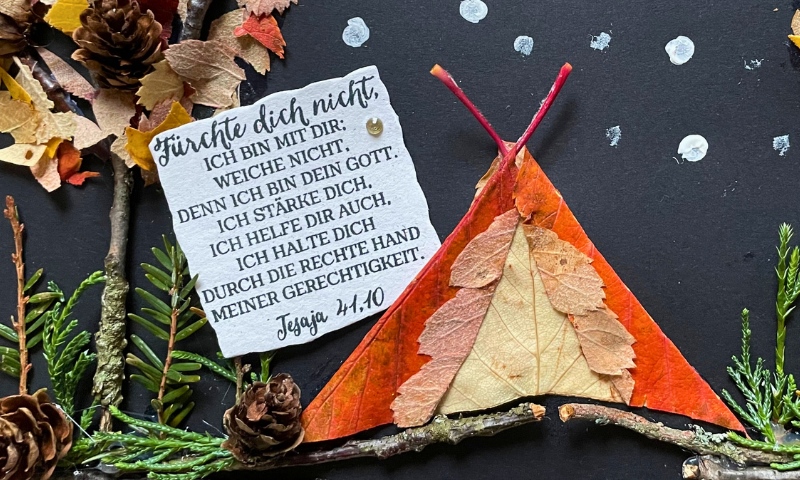 Fürchte dich nicht,
ICH BIN MIT DIR;
WEICHE NICHT,
DENN ICH BIN DEIN GOTT.
ICH STÄRKE DICH,
ICH HELFE DIR AUCH,
ICH HALTE DICH
DURCH DIE RECHTE HAND
MEINER GERECHTIGKEIT.
Jesaja 41,10